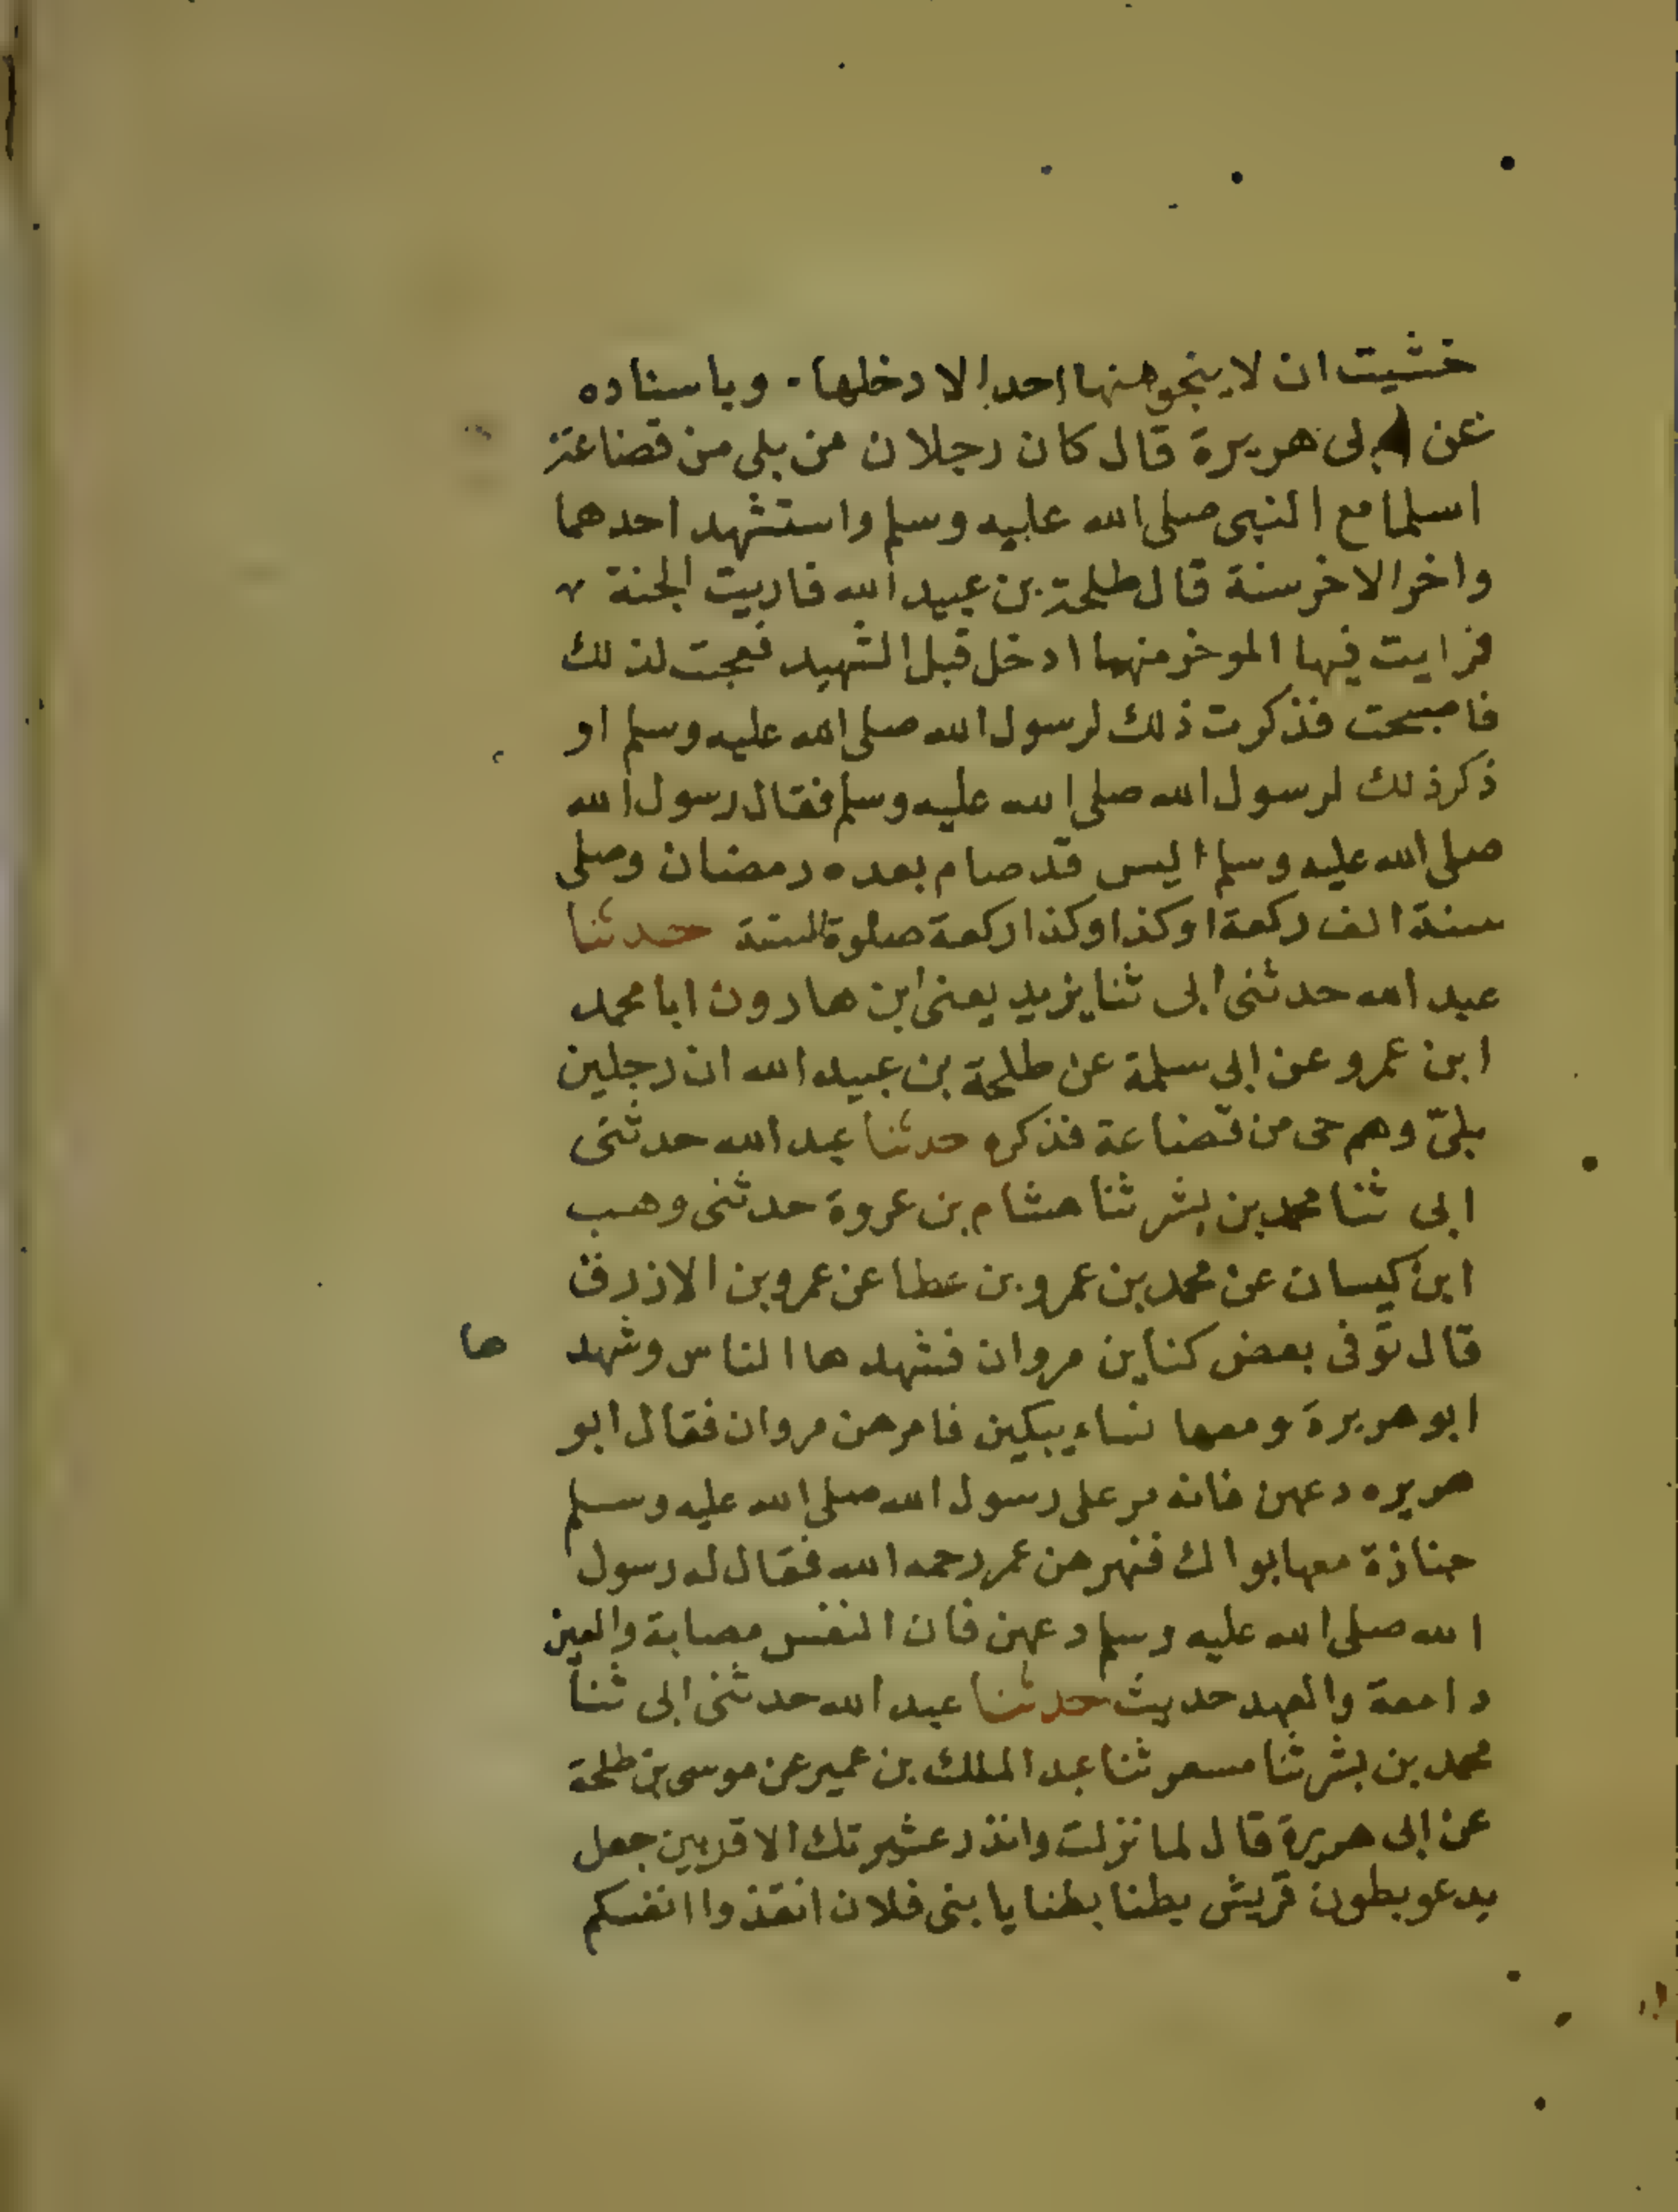 خشيت ان لا ينجو منها احد الا دخلها . وباسناده
عن ابى هريرة قال كان رجلان من بلى من قضاعة
اسلما مع النبى صلى الله عليه وسلم واستشهد احدهما
واخر الاخر سنة قال طلحة بن عبيد الله فاريت الجنة
فرايت فيها الموخر منهما ادخل قبل الشهيد فعجت لذلك
فاصبحت فذكرت ذلك لرسول الله صلى الله عليه وسلم او
ذكر ذلك لرسول الله صلى الله عليه وسلم فقال رسول الله
صلى الله عليه وسلم اليس قد صام بعده رمضان وصلى
ستة الف ركعة او كذا وكذا ركعة صلوة السنة حدثنا
عبد الله حدثنى ابى ثنا يزيد يعنى ابن هارون ابا محمد
ابن عمرو عن ابى سلمة عن طلحة بن عبيد الله ان رجلين
بلىّ وهم حى من قضاعة فذكره حدثنا عبد الله حدثنى
ابى ثنا محمد بن بشر ثنا هشام بن عروة حدثنى وهب
ابن كيسان عن محمد بن عمرو بن عطا عن عمرو بن الازرق
قال توفى بعض كناين مروان فشهدها الناس وشهد ها
ابو هريرة ومعها نساء يبكين فامرهن مروان فقال ابو
هريره دعهن فانه مر على رسول الله صلى الله عليه وسلم
جنازة معها بواك فنهرهن عمر رحمه الله فقال له رسول
الله صلى الله عليه وسلم دعهن فان النفس مصابة والعين
دامعة والعهد حديث حدثنا عبد الله حدثنى ابى ثنا
محمد بن بشر ثنا مسعر ثنا عبد الملك بن عمير عن موسى بن طلحة
عن ابى هريرة قال لما نزلت وانذر عشيرتك الاقربين جعل
يدعو بطون قريش بطنا بطنا يا بنى فلان انقذوا انفسكم